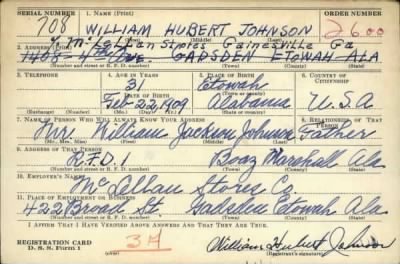 SERIAL NUMBER 1. NAME (Print) ORDER NUMBER
708 WILLIAM HUBERT JOHNSON 2600
(First) (Middle) (Last)
2. ADDRESS (Print) % McLellan Stores Gainesville Ga
1406 AVE. GADSDEN ETOWAH ALA
(Number and street or R. F. D. number) (Town) (County) (State)
3. TELEPHONE 4. AGE IN YEARS 5. PLACE OF BIRTH 6. COUNTRY OF CITIZENSHIP
31 Etowah
DATE OF BIRTH (Town or county)
Feb-22, 1909 Alabama U.S.A
(Exchange) (Number) (Mo.) (Day) (Yr.) (State or country)
7. NAME OF PERSON WHO WILL ALWAYS KNOW YOUR ADDRESS 8. RELATIONSHIP OF THAT PERSON
Mr. William Jackson Johnson Father
(Mr., Mrs., Miss) (First) (Middle) (Last)
9. ADDRESS OF THAT PERSON
R.F.D. 1 Boaz Marshall Ala
(Number and street or R. F. D. number) (Town) (County) (State)
10. EMPLOYER'S NAME
McLellan Stores Co
11. PLACE OF EMPLOYMENT OR BUSINESS
422 Broad St. Gadsden Etowah Ala
(Number and street or R. F. D. number) (Town) (County) (State)
I AFFIRM THAT I HAVE VERIFIED ABOVE ANSWERS AND THAT THEY ARE TRUE.
REGISTRATION CARD
D. S. S. Form 1 William Hubert Johnson
(Registrant's signature)